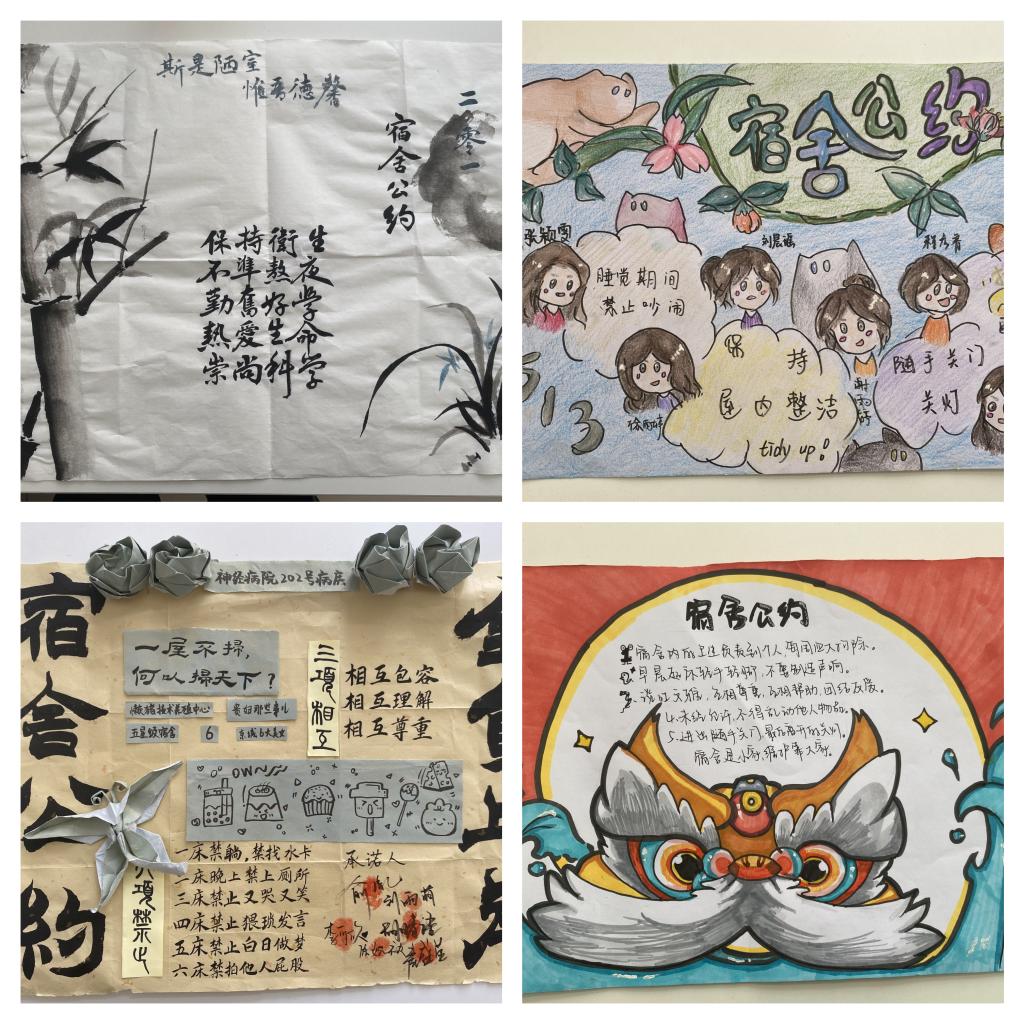 斯是陋室
惟吾德馨
二零一
宿舍公约
保持衛生
不準熬夜
勤奮好學
熱愛生命
崇尚科学
宿舍公约
张颖雯
睡觉期间
禁止吵闹
保持
屋内整洁
tidy up!
随手关门
关灯
13
神经病院202号病房
宿舍公約
一屋不掃,
何以掃天下?
五星级宿舍
6
三項相互
相互包容
相互理解
相互尊重
OW~
項禁止
一床禁躺,禁找水卡
二床晚上禁上厕所
三床禁止又哭又笑
四床禁止猥琐发言
五床禁止白日做梦
六床禁拍他人屁股
承诺人
宿舍公约
宿舍内的卫生负责到个人,
早晨起床轻手轻脚,不要制造声响。
说话文明,互相尊重,互相帮助,团结友爱。
4.未经允许,不得乱动他人物品。
5.进出随手关门,最后离开的关灯。
宿舍是小家,维护靠大家。